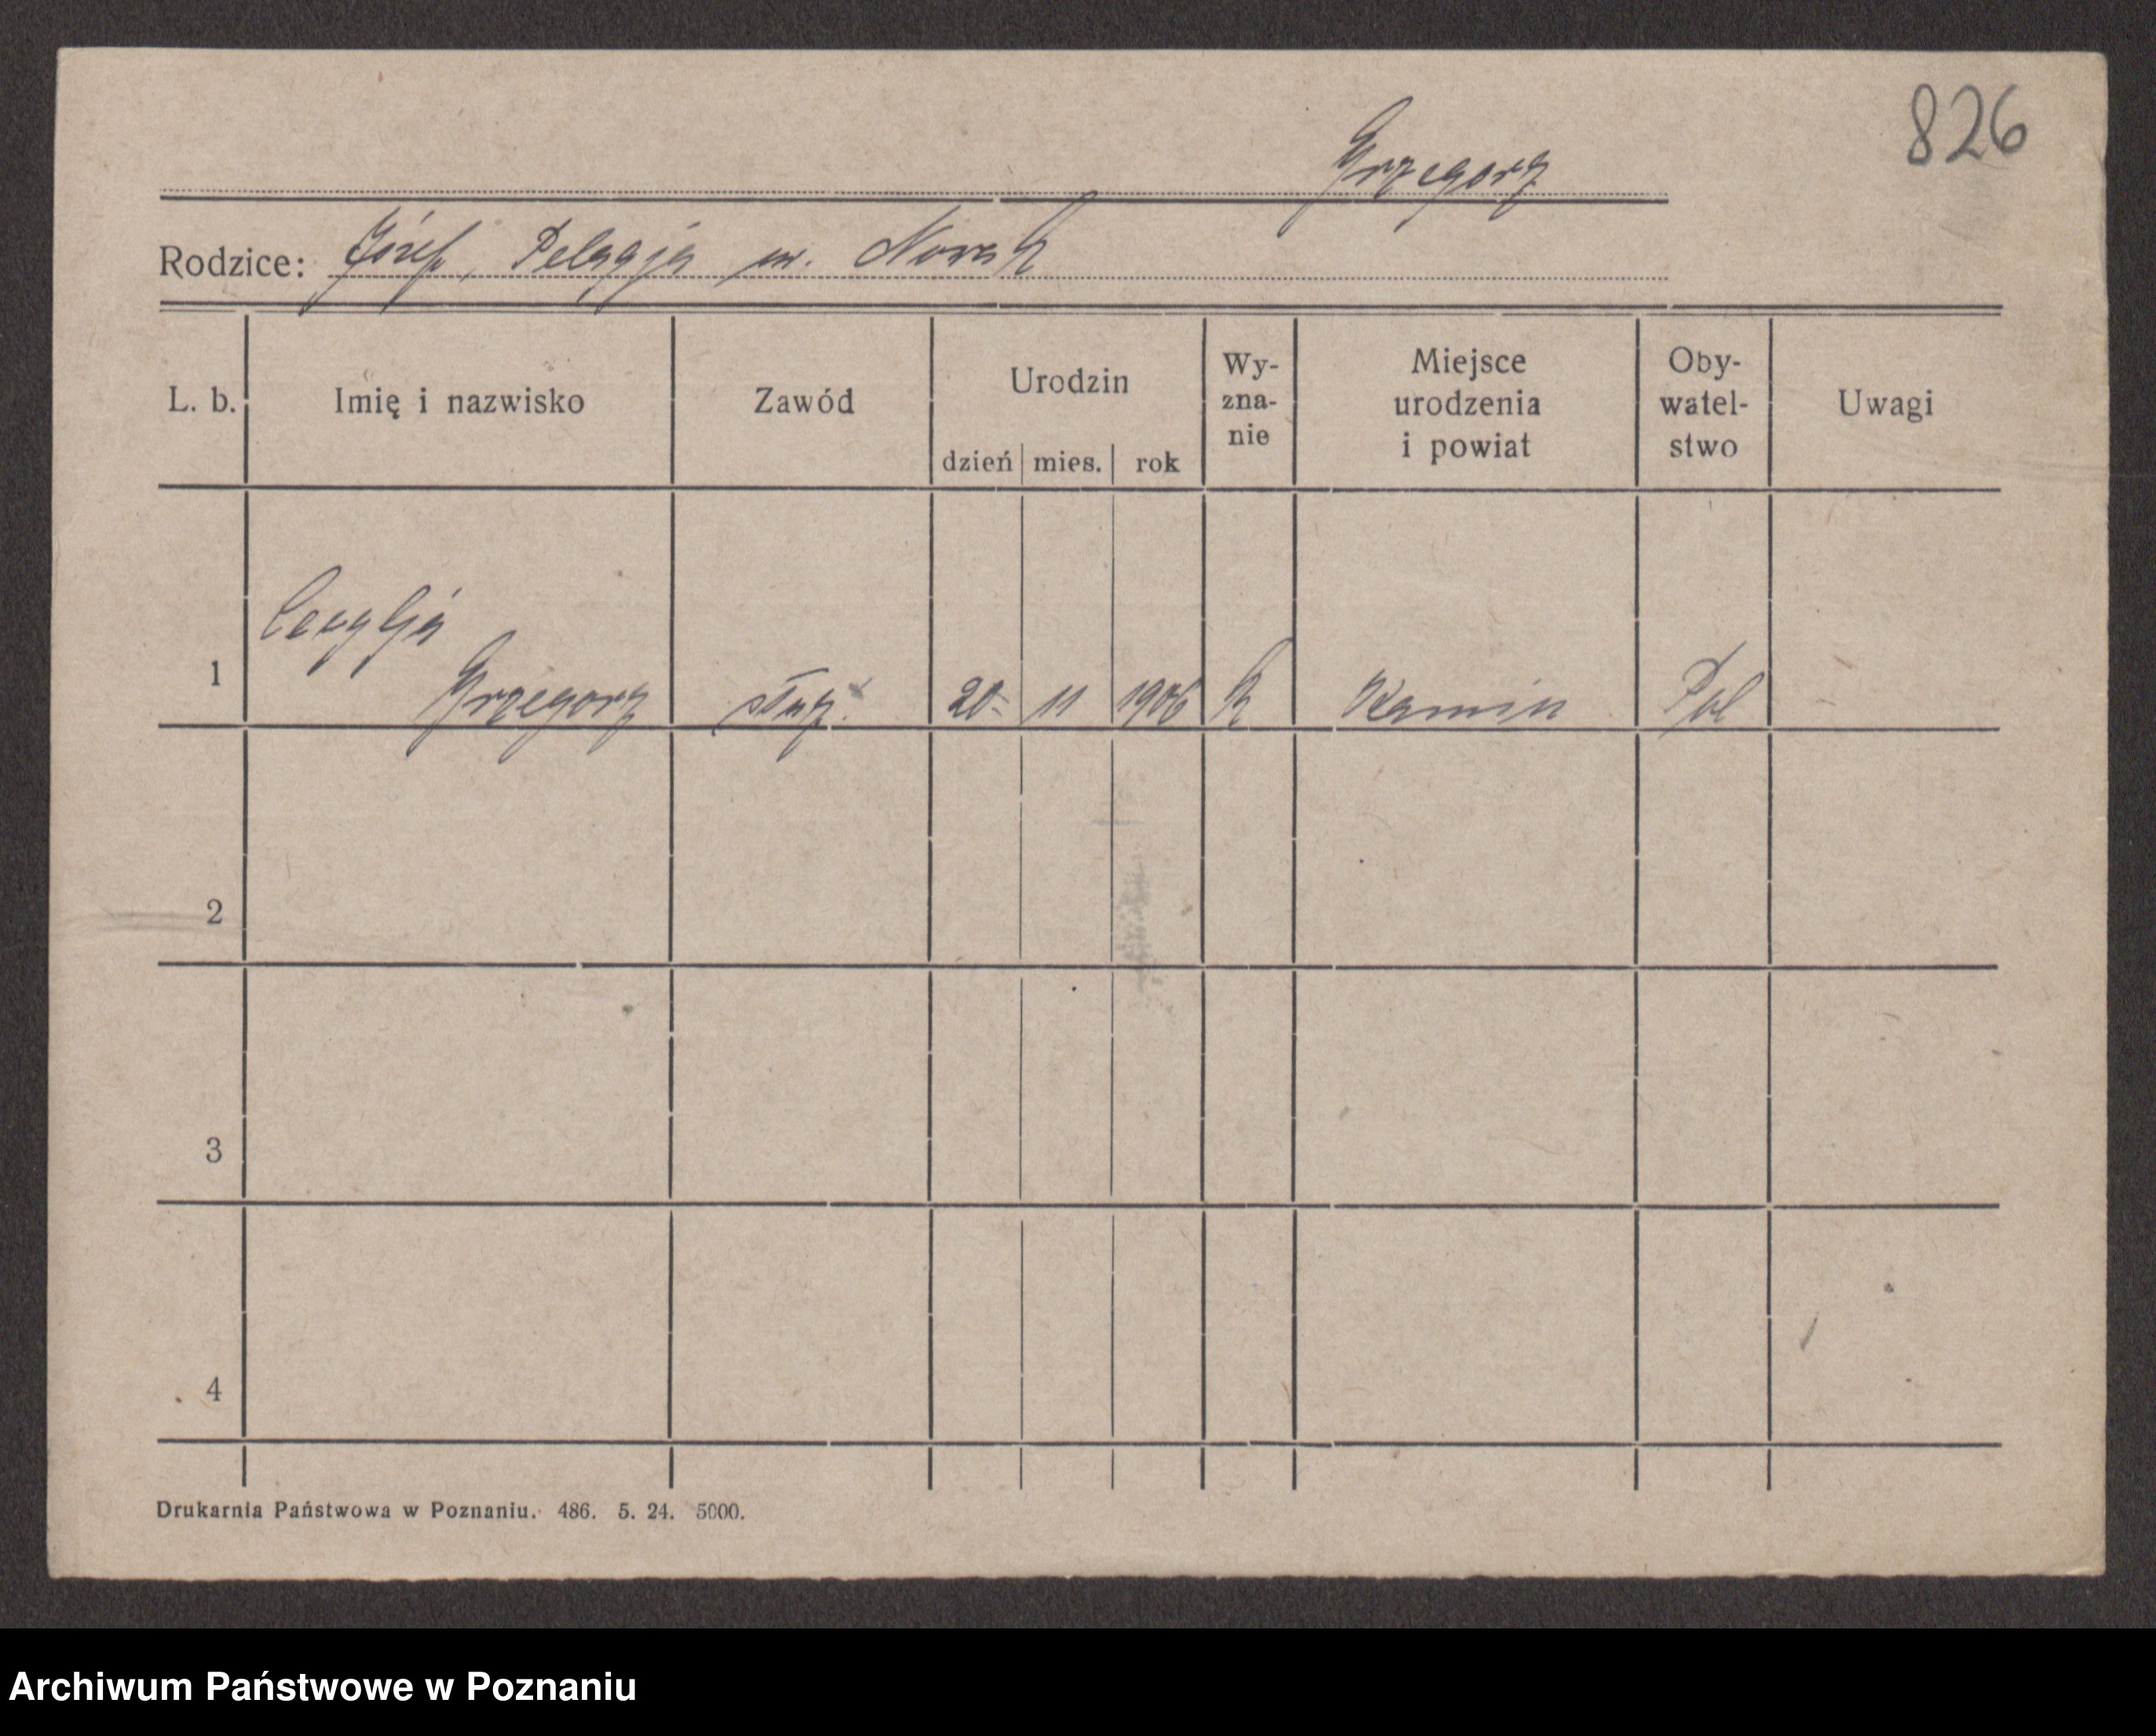 826
Grzegorz
Rodzice: Józef, Pelagja ur. Nowak
L. b. Imię i nazwisko Zawód Urodzin dzień mies. rok Wy-zna-nie Miejsce urodzenia i powiat Oby-watel-stwo Uwagi
Cecylja
1 Grzegorz służ. 20. 11 1906 k Kamin Pol
2
3
4
Drukarnia Państwowa w Poznaniu. 486. 5. 24. 5000.
Archiwum Państwowe w Poznaniu